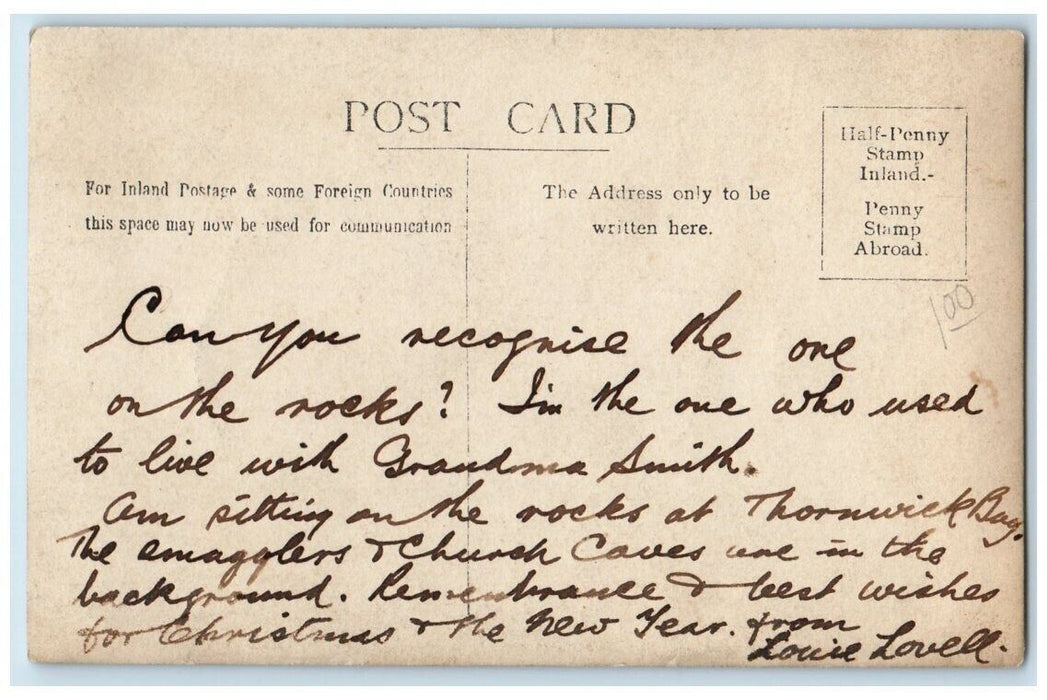 POST CARD
For Inland Postage & some Foreign Countries
this space may now be used for communication
The Address only to be
written here.
Half-Penny
Stamp
Inland.-
Penny
Stamp
Abroad.
100
Can you recognise the one
on the rocks? I'm the one who used
to live with Grandma Smith.
Am sitting on the rocks at Thornwick Bay.
The smugglers & Church Caves are in the
background. Remembrance & best wishes
for Christmas & the New Year. from
Louie Lovell.